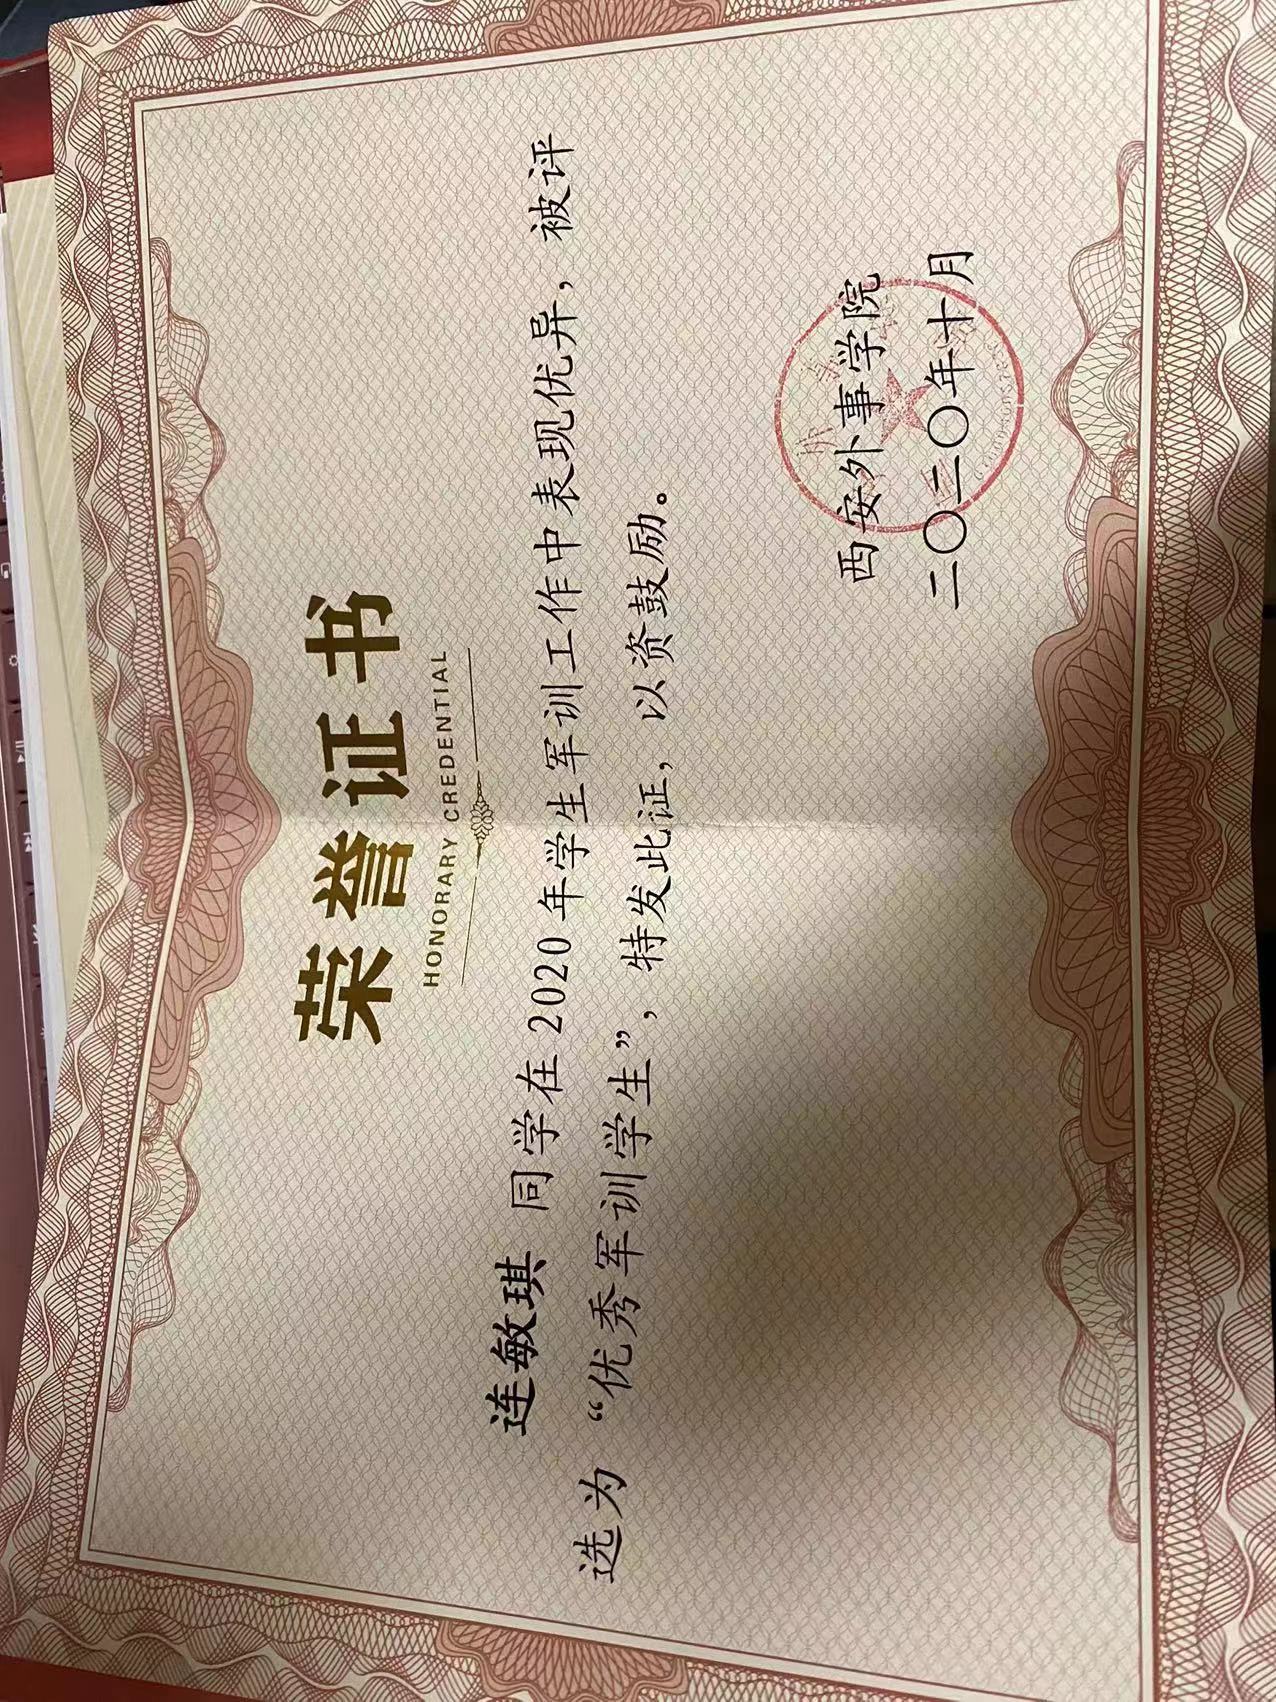 荣誉证书
HONORARY CREDENTIAL
连敏琪 同学在 2020 年学生军训工作中表现优异，被评
选为 “优秀军训学生”，特发此证，以资鼓励。
西安外事学院
二〇二〇年十月